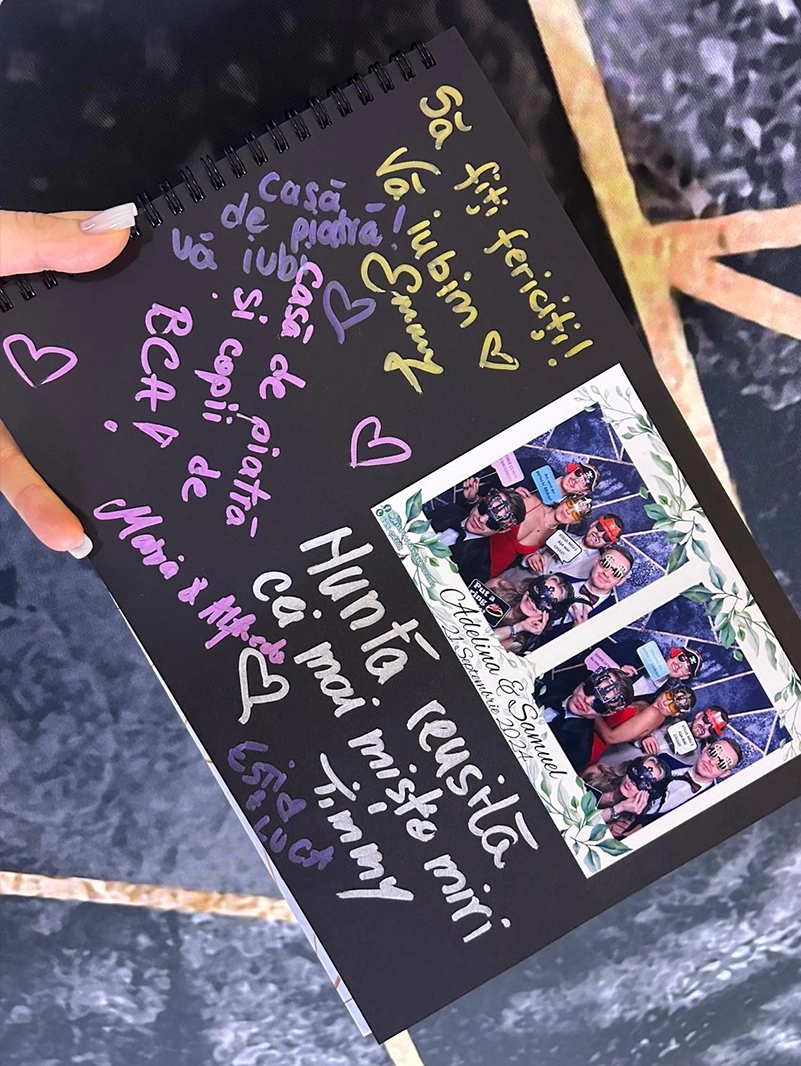 Să fiți fericiți!
Vă iubim
Emmy
Casă
de piatră!
Vă iubi
Casă de piatră
Si copii de
BCA!
Maria & Alfredo
Nuntă reusită
cei mai mișto miri
Timmy
& LUCA
Adelina & Samuel
21 Septembrie 2024
Put a
ring